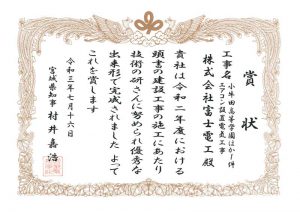 賞状
工事名 小牛田高等学園ほか1件
エアコン設置電気工事
株式会社富士電工殿
貴社は令和二年度における
頭書の建設工事の施工にあたり
技術の研さんに努められ優秀な
出来形で完成されました よって
これを賞します
令和三年七月十六日
宮城県知事 村井嘉浩